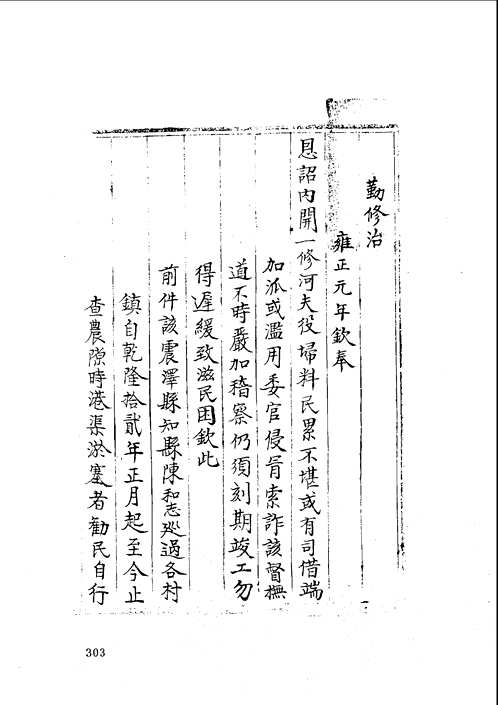 勤修治
雍正元年欽奉
恩詔內開一修河夫役埽料民累不堪或有司借端
加派或濫用委官侵肯索詐該督撫
道不時嚴加稽察仍須刻期竣工勿
得遲緩致滋民困欽此
前件該震澤縣知縣陳和志廵過各村
鎮自乾隆拾貳年正月起至今止
查農隙時港渠淤塞者勸民自行
303